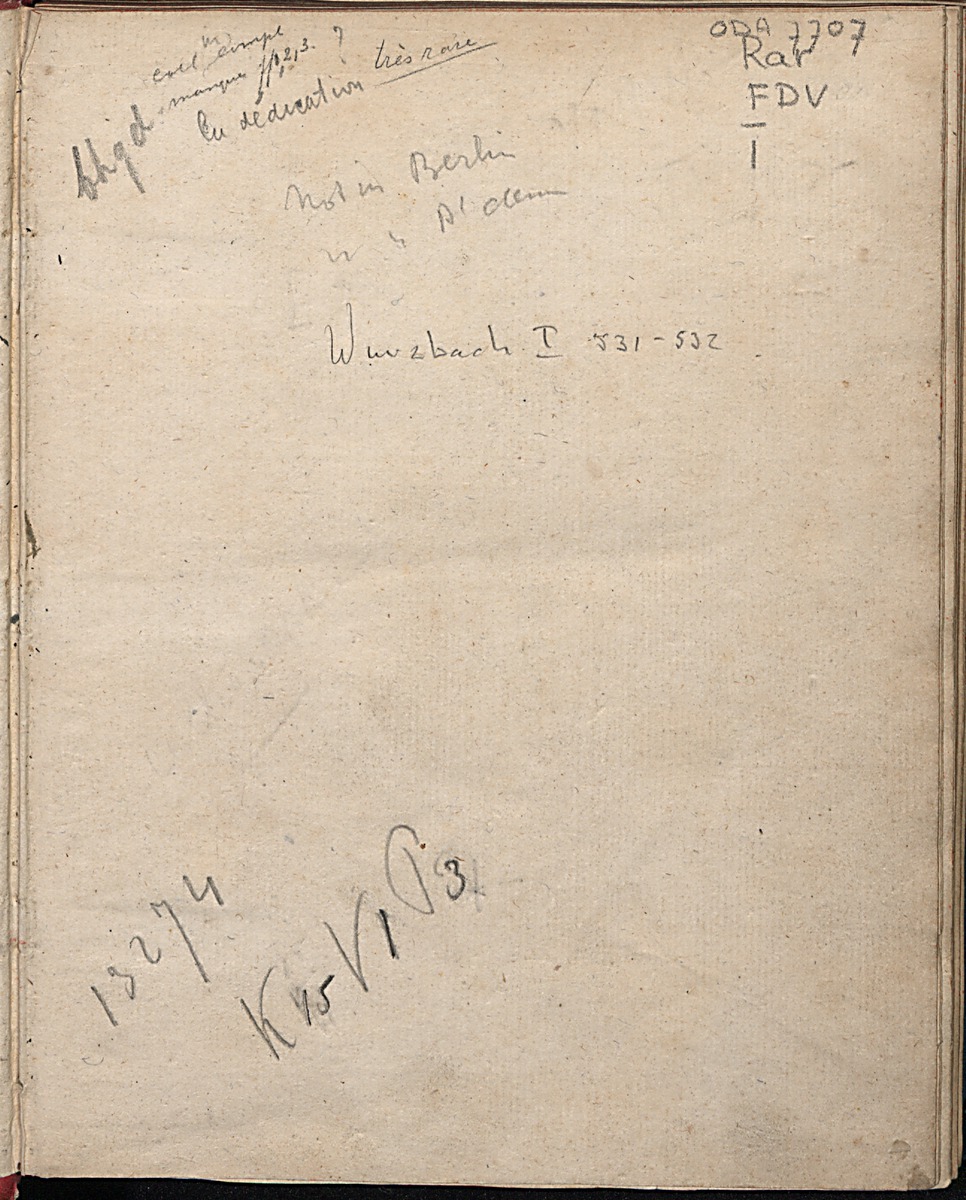 coll compl
manque ff 1, 2, 3. ?
la dédication très rare
ODA 7707
Rar
FDV
I
Not in Berlin
" " A'dam
Wurzbach I 531-532
13274
K 45 V 1 P 3